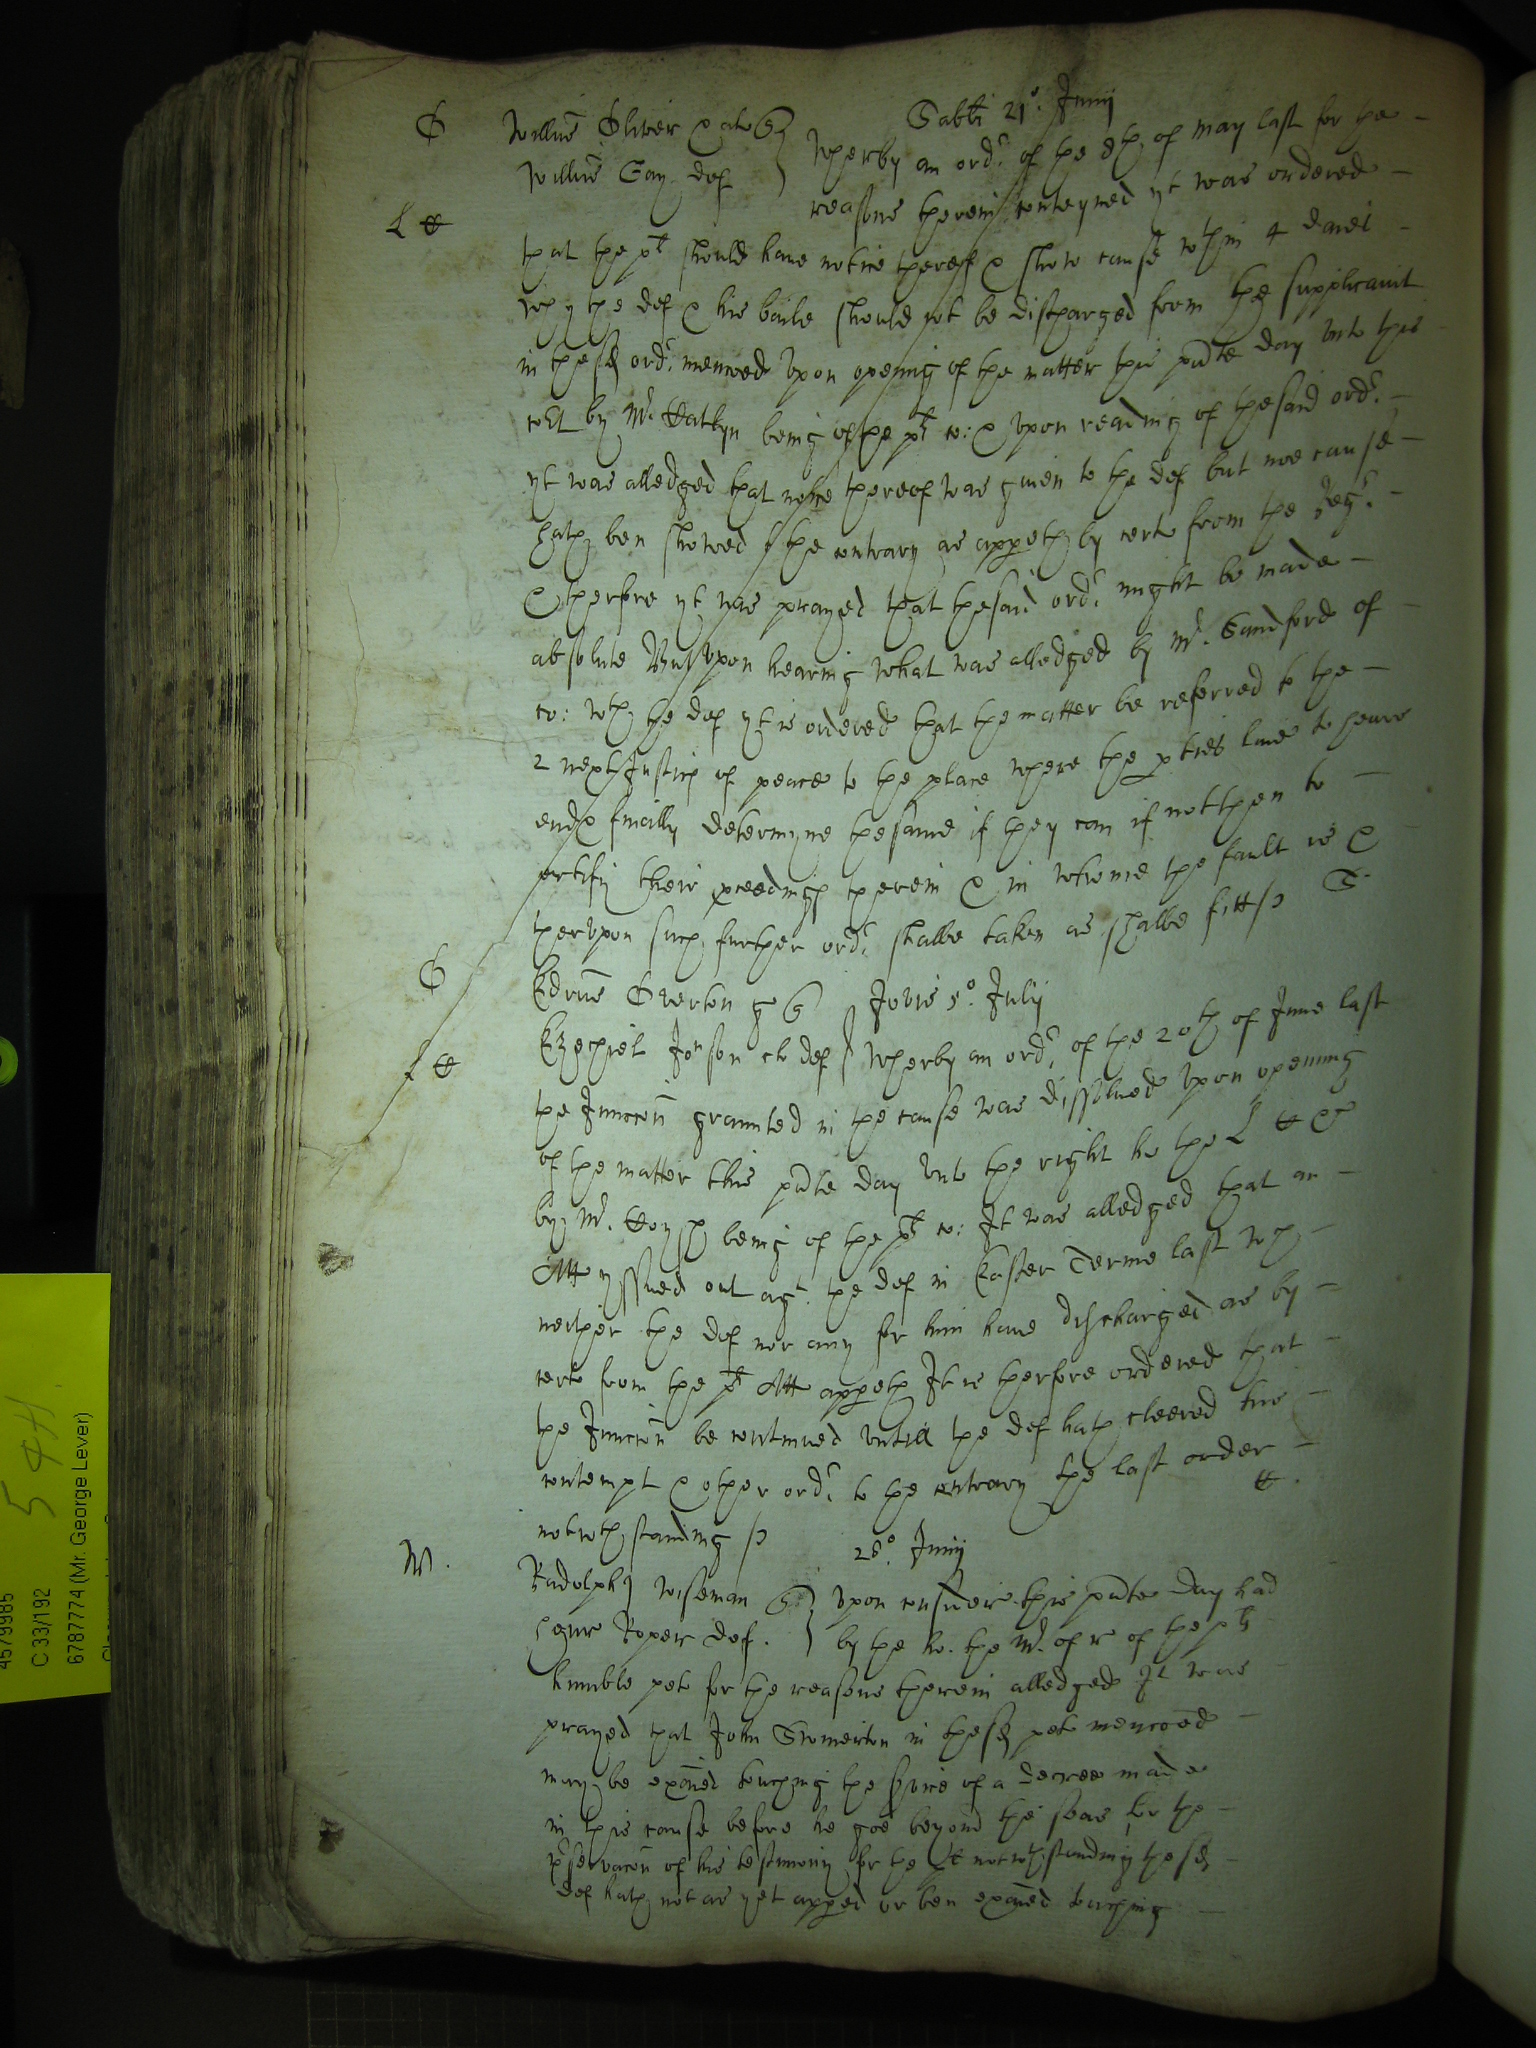 O Willms Oliver & al Quer Sabbti 21o Junij
Willms Gay def Wherby an ordr of the 8th of May last for the
L H reasons therein conteyned yt was ordered
that the plt should have notice thereof & show cause wthin 4 daies
why the def & his baile should not be discharged from the supplicauit
in the sd ordr mencoed Vpon opening of the matter this pnte day vnto this
cort by Mr Hatkyn being of the plt co: & vpon reading of the said ordr
yt was alledged that notice thereof was giuen to the def but noe cause
hath ben showed to the contrary as appeth by cert from the Regr
& therfore yt was prayed that the said ordr might be made
absolute But vpon hearing what was alledged by Mr Sandford of
co: wth the def yt is ordered that the matter be referred to the
2 next Justics of peace to the place where the pties liue to heare
end & finally determyne the same if they can if not then to
certify their pceedings therein & in whome the fault is &
thervpon such further ordr shalbe taken as shalbe fitt
O Edrus Overton g Quer Jovis 5o Julij
Ezechiel Jonson cl def Wherby an ordr of the 20th of June last
L H the Iniuccon graunted in the cause was dissolued vpon opening
of the matter this pnte day vnto the right ho the L H &
by Mr Hoysh being of the plt co: It was alledged that an
Att yssued out agt the def in Easter Terme last wch
neither the def nor any for him haue discharged as by
cert from the plt Att appeth It is therfore ordered that
the Iniuccon be contynued vntill the def hath cleered his
contempt & other ordr to the contrary the last order
notwthstanding H
W. 28o Junij
Radolphus Wiseman Quer Vpon consideracon this pnte day had
Henr Roper def. by the ho. the Mr of r of the plts
humble pet for the reasons therein alledged It was
prayed that John Somerton in the sd pet mencoed
may be exaied touching the service of a decree made
in this cause before he goe beyond the seas for the
pservacon of his testimony for the plt notwthstanding the sd
def hath not as yet apped or ben exaied touching
5 4H
4579985
C 33/192
6787774 (Mr. George Lever)